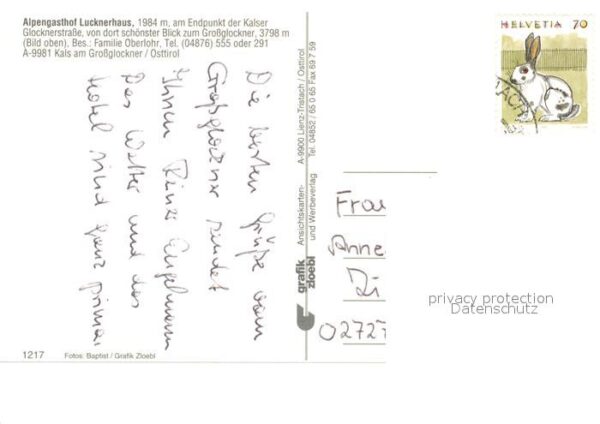 Alpengasthof Lucknerhaus, 1984 m, am Endpunkt der Kalser
Glocknerstraße, von dort schönster Blick zum Großglockner, 3798 m
(Bild oben). Bes.: Familie Oberlohr, Tel. (04876) 555 oder 291
A-9981 Kals am Großglockner / Osttirol
Die besten Grüße vom
Großglockner sendet
Ihnen Heinz Engelmann
Das Wetter und das
Hotel sind ganz prima.
1217 Fotos: Baptist / Grafik Zloebl
grafik
zloebl
Ansichtskarten-
und Werbeverlag
A-9900 Lienz-Tristach / Osttirol
Tel. 04852 / 65 0 65 Fax 69 7 59
HELVETIA 70
Frau
Anne
02727
privacy protection
Datenschutz